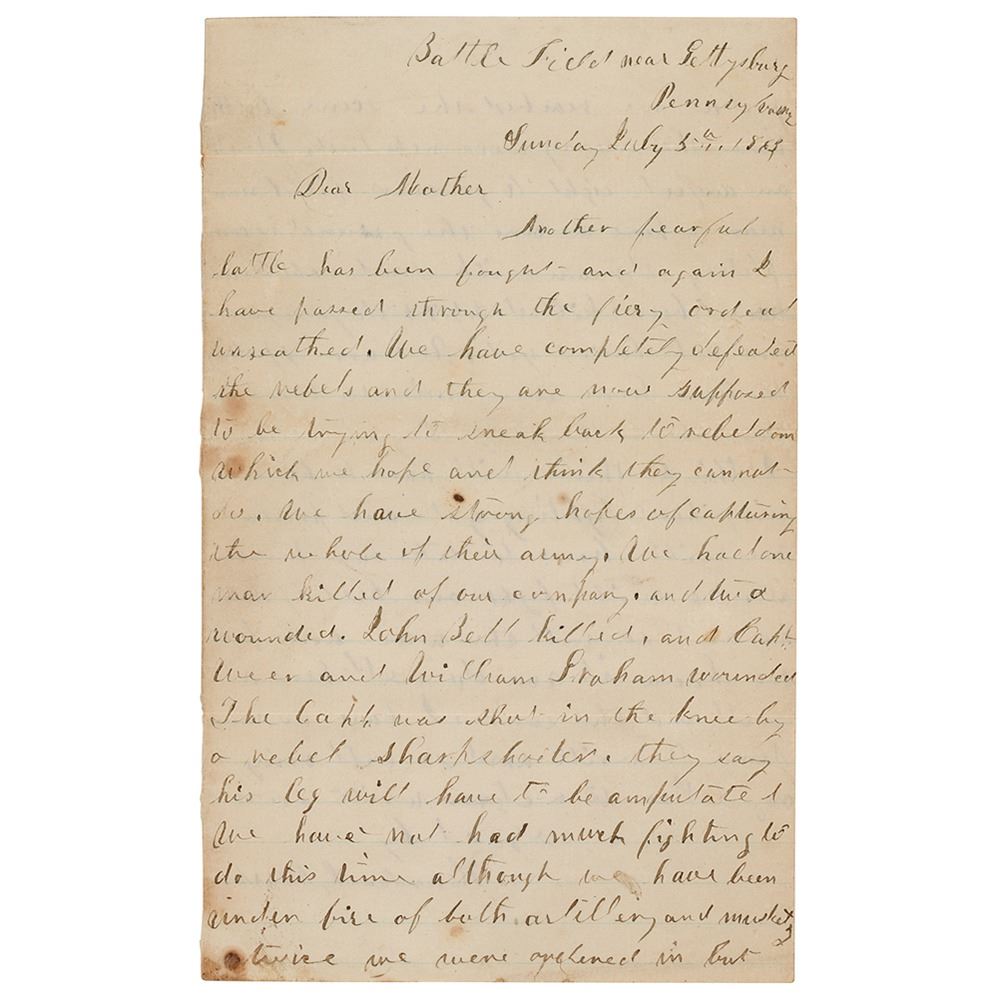 Battle Field near Gettysburg
Pennsylvany
Sunday July 5th. 1863
Dear Mother
Another fearful
battle has been fought and again I
have passed through the fiery ordeal
unscathed. We have completely defeated
the rebels and they are now supposed
to be trying to sneak back to rebeldom
which we hope and think they cannot
do. We have strong hopes of capturing
the whole of their army. We had one
man killed of our company. and two
wounded. John Bell killed, and Capt.
Weer and William Graham wounded
The Capt. was shot in the knee by
a rebel sharpshooter. they say
his leg will have to be amputated
We have not had much fighting to
do this time although we have been
under fire of both artillery and musketry
twice we were ordered in but